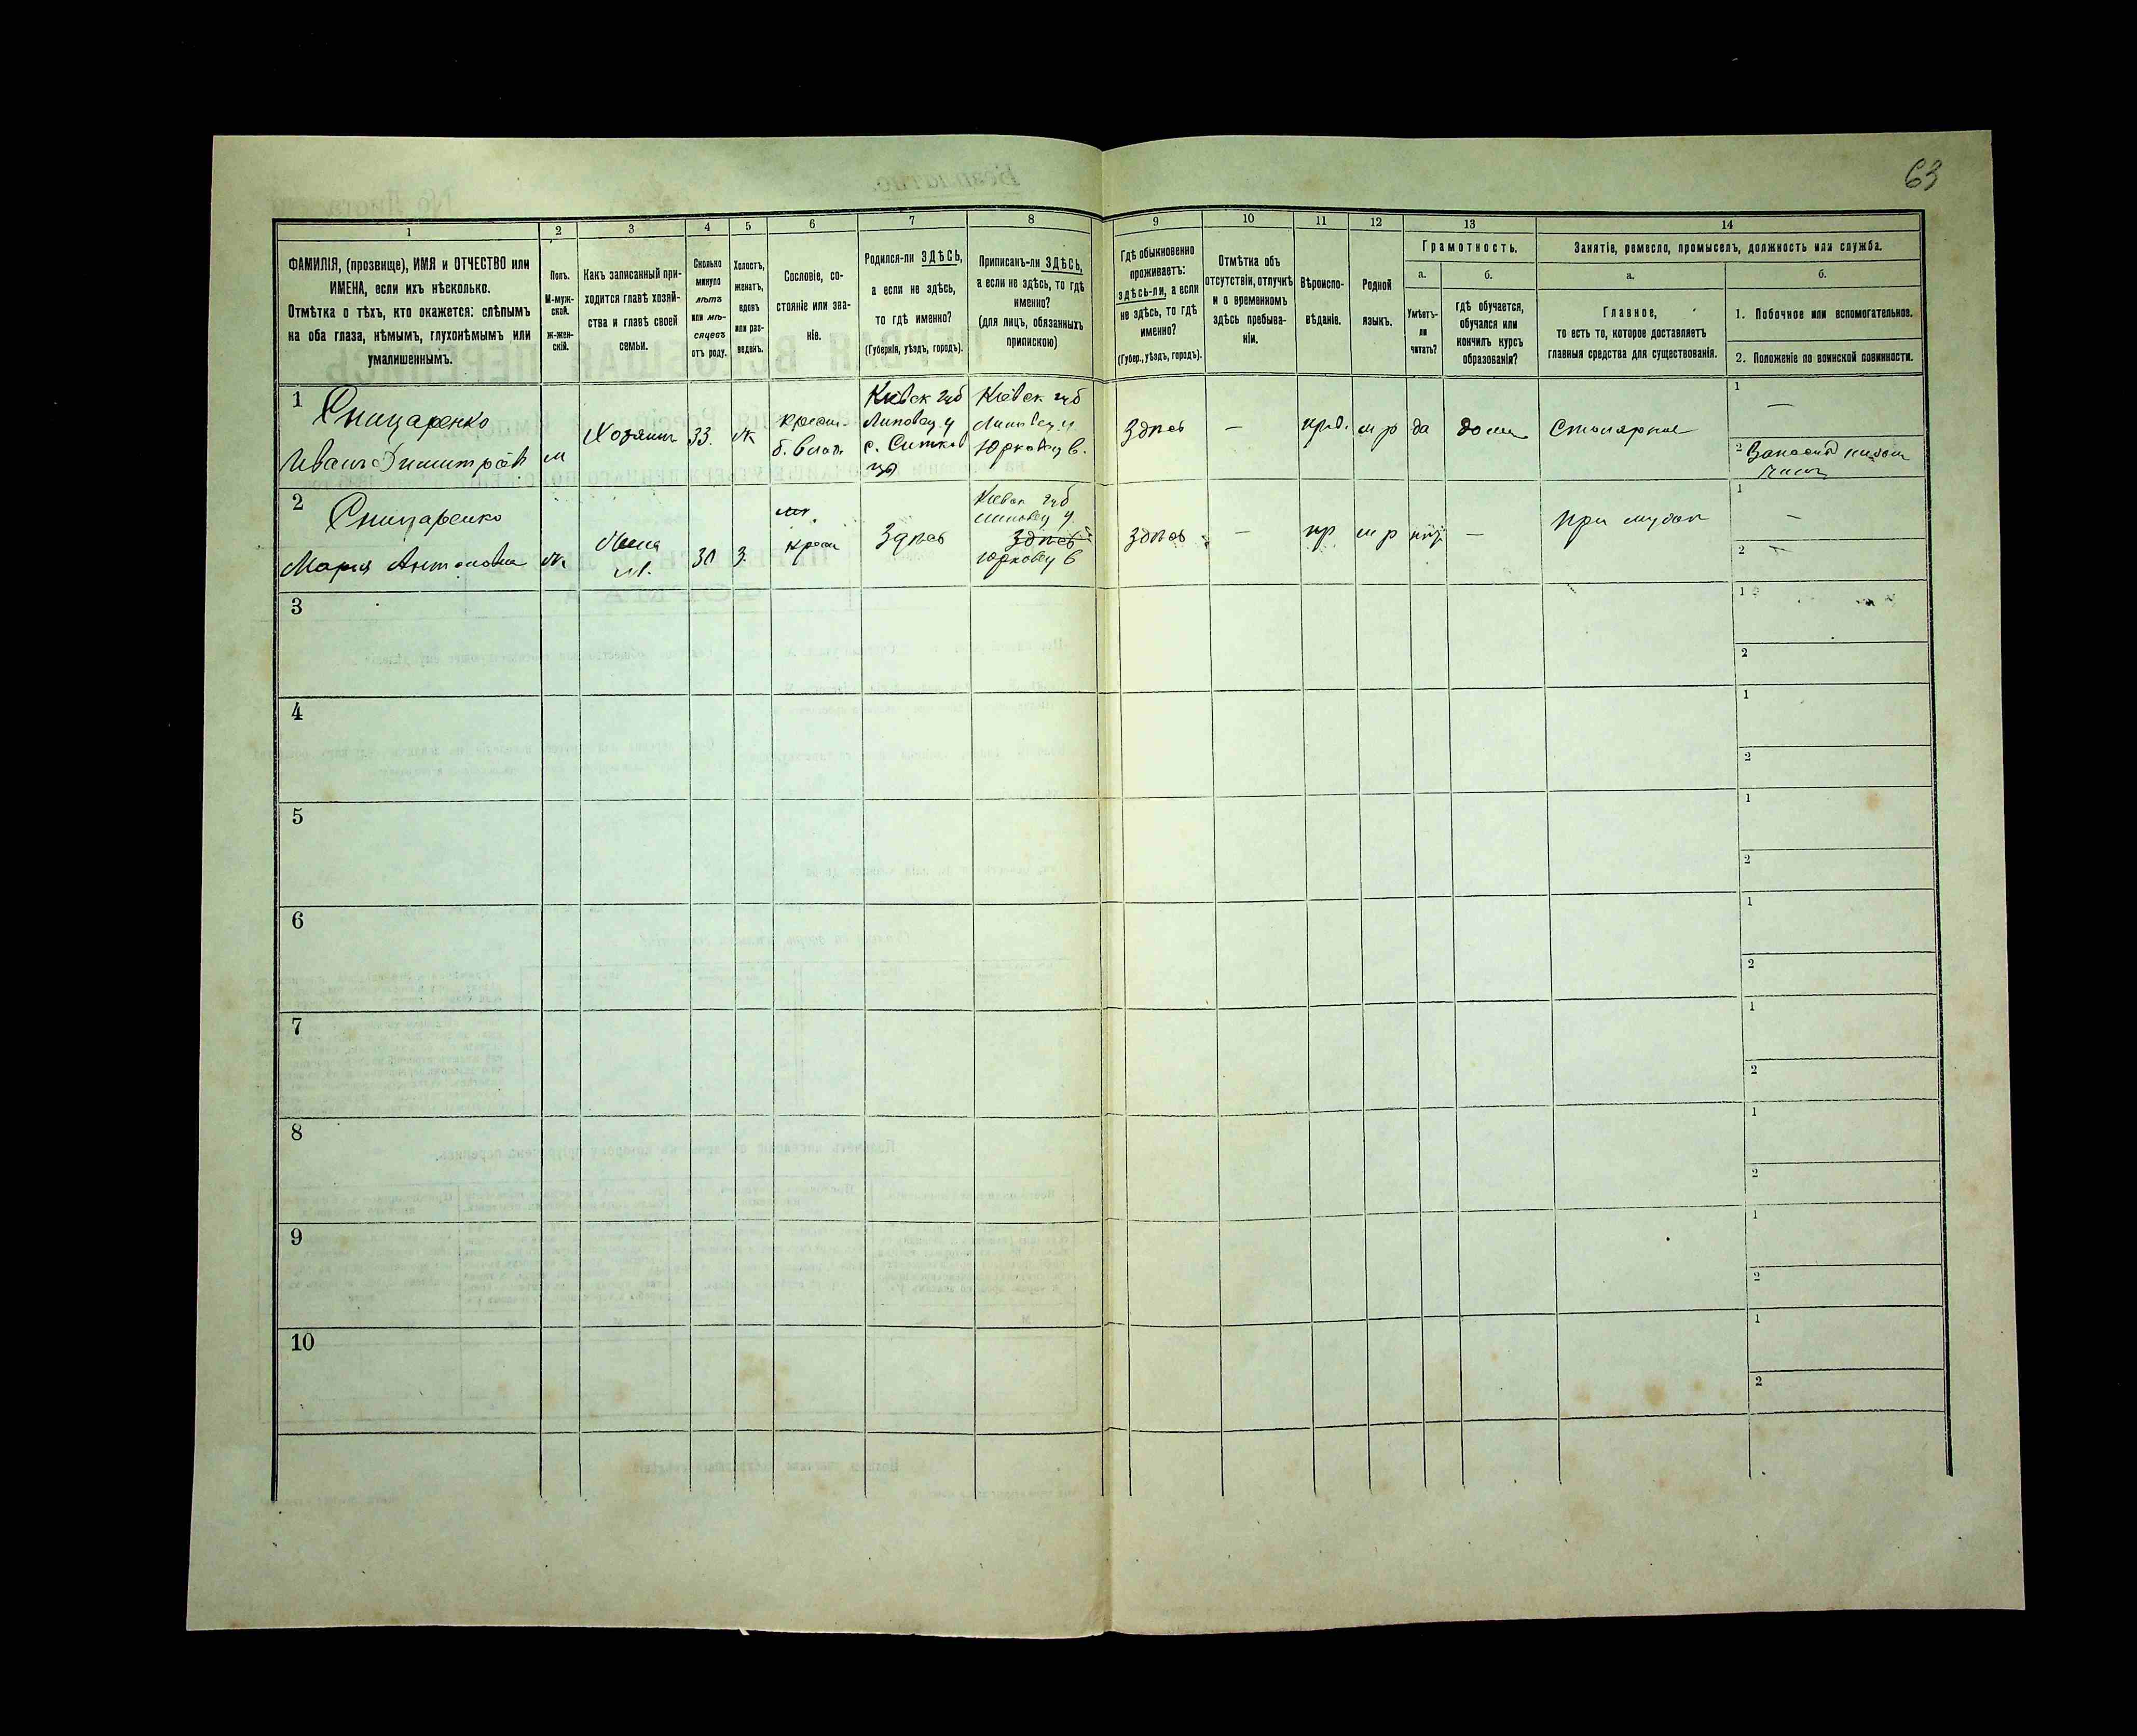 63
1
2
3
4
5
6
7
8
9
10
11
12
13
14
ФАМИЛІЯ, (прозвище), ИМЯ и ОТЧЕСТВО или
ИМЕНА, если ихъ нѣсколько.
Отмѣтка о тѣхъ, кто окажется: слѣпымъ
на оба глаза, нѣмымъ, глухонѣмымъ или
умалишеннымъ.
Полъ.
М-муж-
ской.
ж-жен-
скій.
Какъ записанный при-
ходится главѣ хозяй-
ства и главѣ своей
семьи.
Сколько
минуло
лѣтъ
или мѣ-
сяцевъ
отъ роду.
Холостъ,
женатъ,
вдовъ
или раз-
веденъ.
Сословіе, со-
стояніе или зва-
ніе.
Родился-ли ЗДѢСЬ,
а если не здѣсь,
то гдѣ именно?
(Губернія, уѣздъ, городъ).
Приписанъ-ли ЗДѢСЬ,
а если не здѣсь, то гдѣ
именно?
(для лицъ, обязанныхъ
припискою)
Гдѣ обыкновенно
проживаетъ:
здѣсь-ли, а если
не здѣсь, то гдѣ
именно?
(Губер., уѣздъ, городъ).
Отмѣтка объ
отсутствіи, отлучкѣ
и о временномъ
здѣсь пребыва-
ніи.
Вѣроиспо-
вѣданіе.
Родной
языкъ.
Грамотность.
а.
Умѣетъ-
ли
читать?
б.
гдѣ обучается,
обучался или
кончилъ курсъ
образованія?
Занятіе, ремесло, промыселъ, должность или служба.
а.
Главное,
то есть то, которое доставляетъ
главныя средства для существованія.
б.
1. Побочное или вспомогательное.
2. Положеніе по воинской повинности.
1
Спицаренко
Иванъ
м
Хозяинъ
33.
ж
крест.
Кіевск губ
Липовец у
Кіевск губ
Липовец у.
Юрковец в.
Здѣсь
—
прав.
м р
да
дома
Столярное
1
—
2
2
Спицаренко
Мария Антоновна
ж
Жена
30
3.
крест
Здѣсь
Кіевск губ
Липовец у.
Здѣсь
Юрковец в
Здѣсь
—
пр
м р
—
При мужѣ
1
—
2
3
1
2
4
1
2
5
1
2
6
1
2
7
1
2
8
1
2
9
1
2
10
1
2